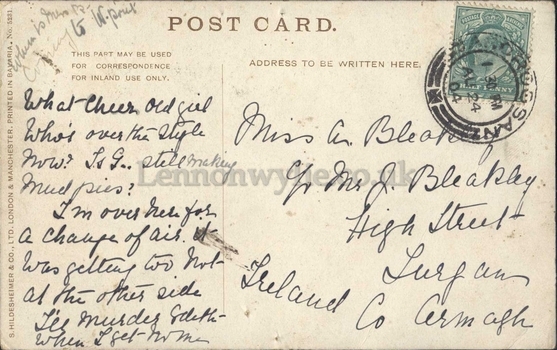 POST CARD.
THIS PART MAY BE USED
FOR CORRESPONDENCE
FOR INLAND USE ONLY.
ADDRESS TO BE WRITTEN HERE.
to W. port
What cheer old girl
Who's over the style
Now? Is G... still making
Mud pies?
I'm over here for
a change of air. It
was getting too hot
at the other side
I'll murder Edeth
when I get home
Miss A. Bleakley
c/o Mr J. Bleakley
High Street
Lurgan
Ireland Co Armagh
HALF PENNY
S. HILDESHEIMER & CO., LTD. LONDON & MANCHESTER. PRINTED IN BAVARIA, No. 5231.
Lennonwylie.co.uk